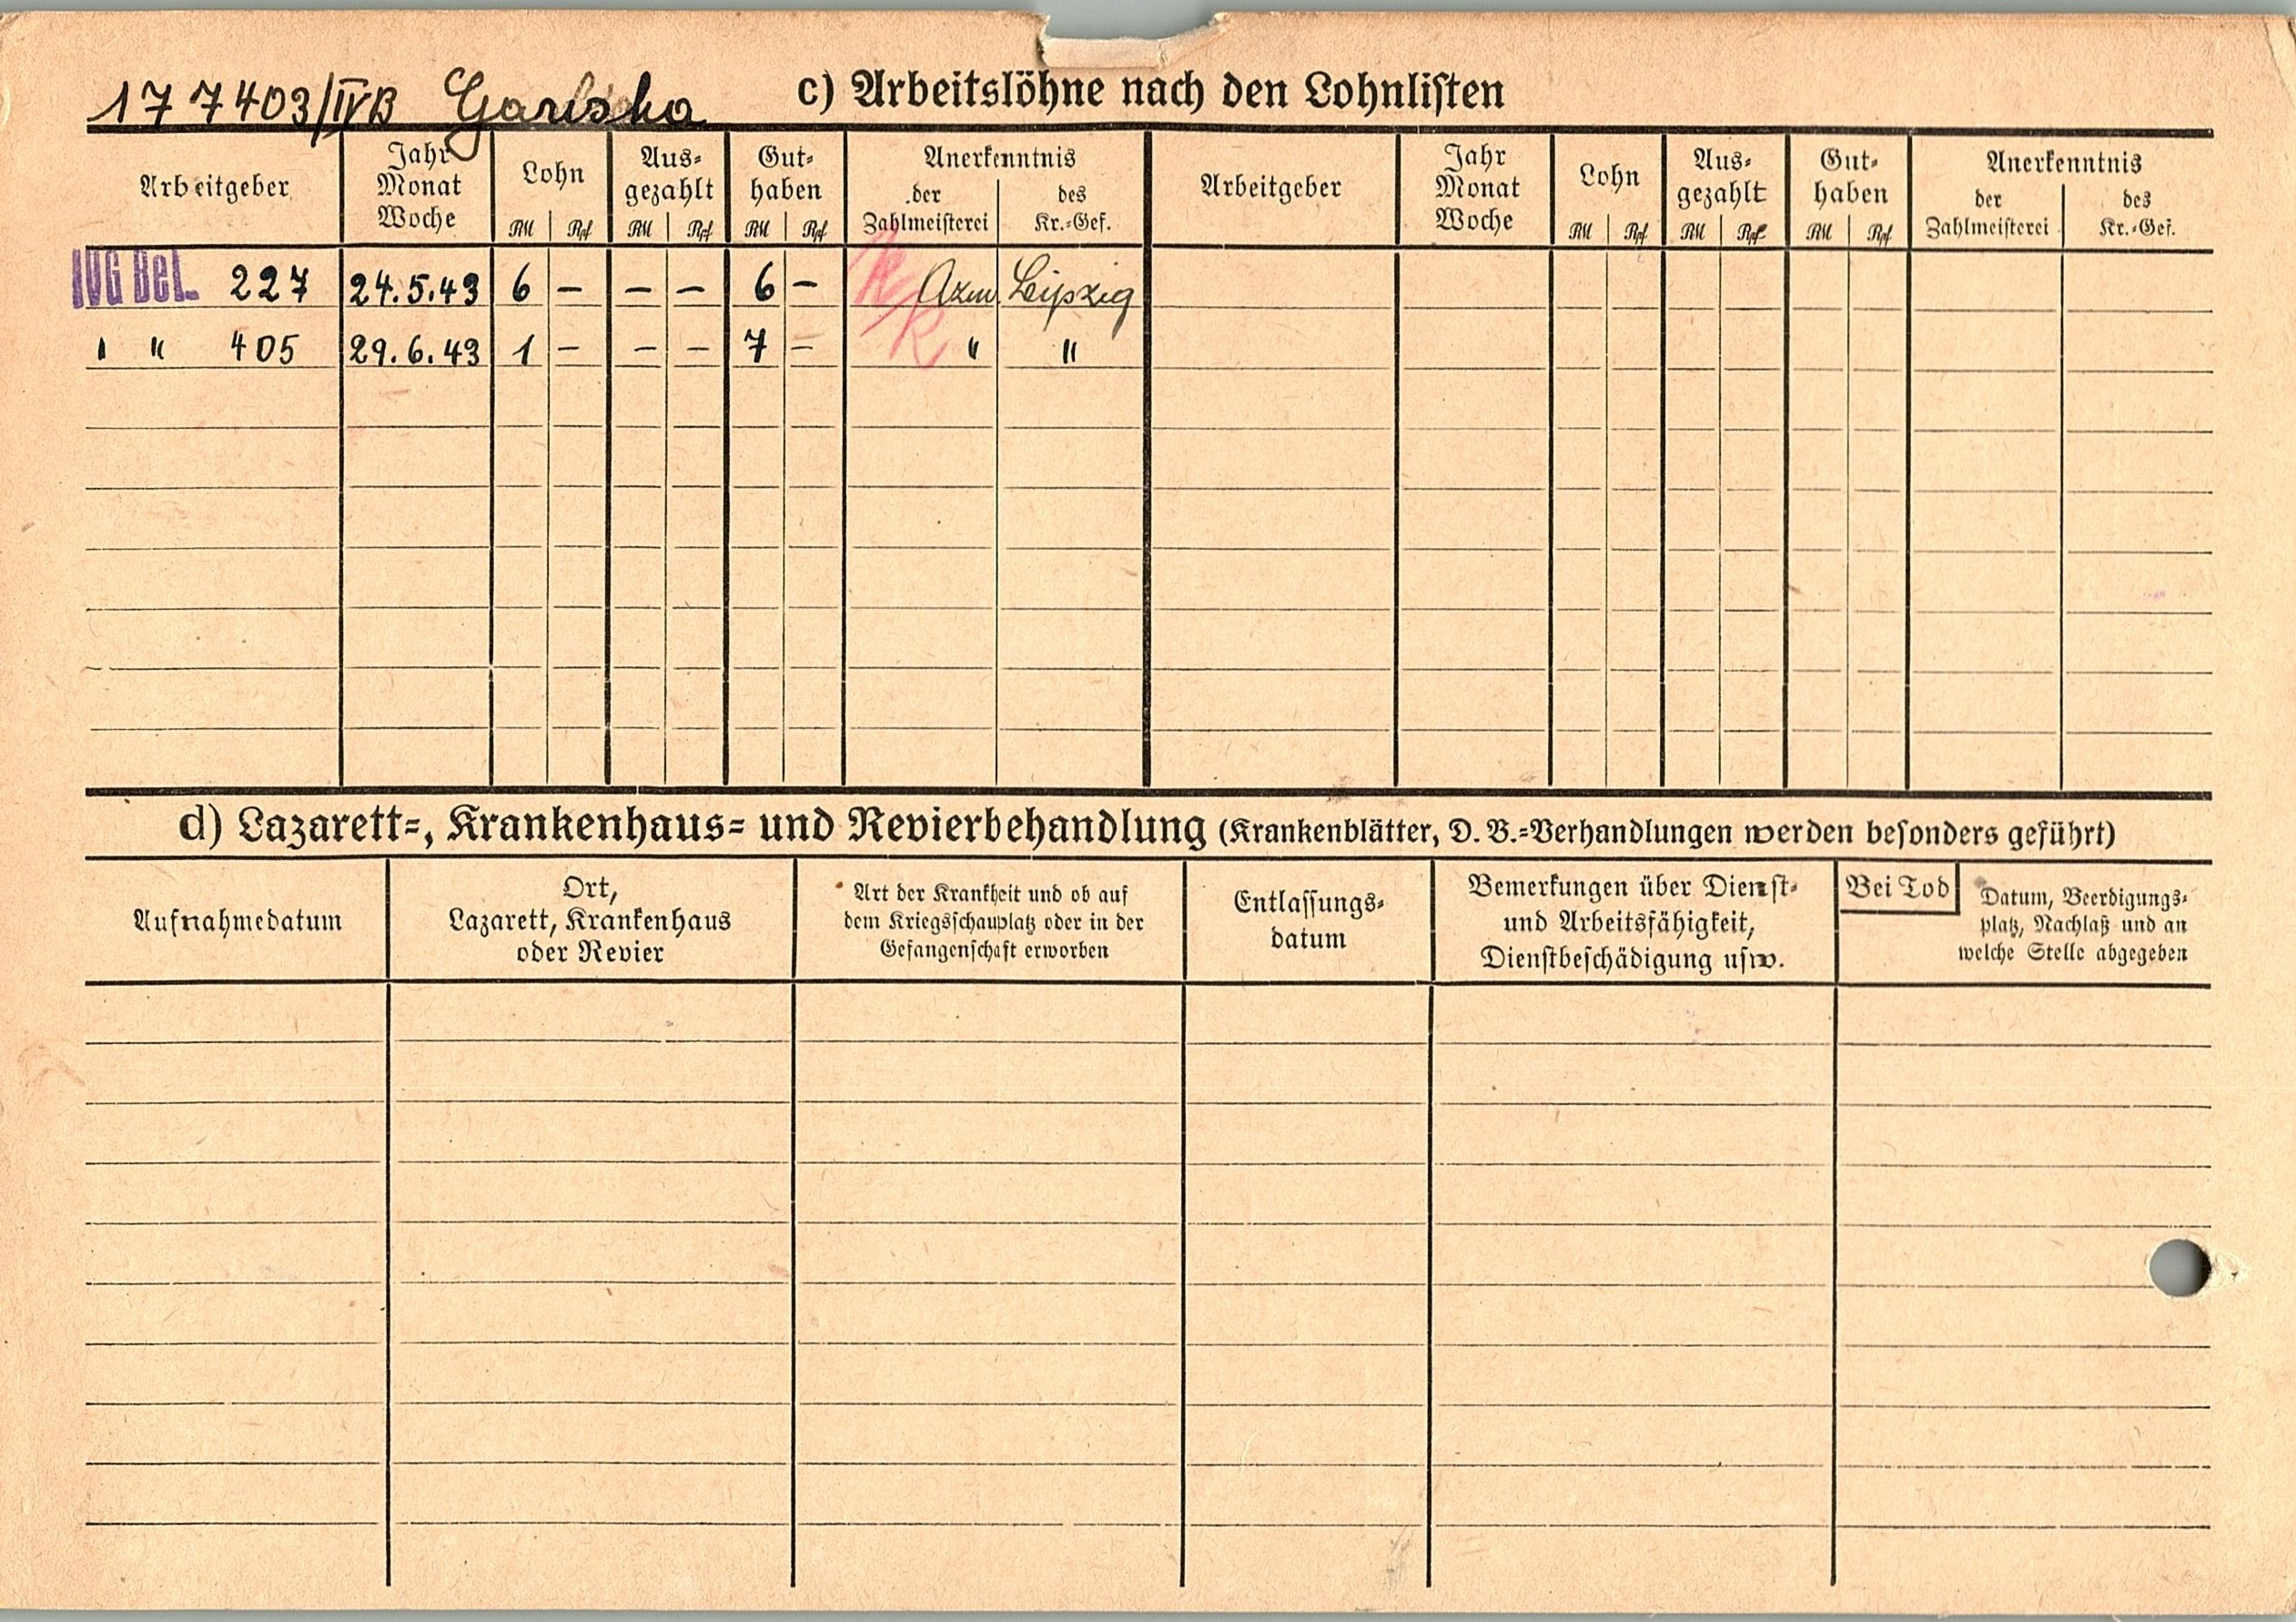 177403/IVB c) Arbeitslöhne nach den Lohnlisten
Arbeitgeber Jahr Monat Woche Lohn RM Rpf Aus- gezahlt RM Rpf Gut- haben RM Rpf Anerkenntnis der Zahlmeisterei des Kr.-Gef. Arbeitgeber Jahr Monat Woche Lohn RM Rpf Aus- gezahlt RM Rpf Gut- haben RM Rpf Anerkenntnis der Zahlmeisterei des Kr.-Gef.
IVG Bel. 227 24.5.43 6 – – – 6 – Leipzig
" " 405 29.6.43 1 – – – 7 – " "
d) Lazarett-, Krankenhaus- und Revierbehandlung (Krankenblätter, D. B.-Verhandlungen werden besonders geführt)
Aufnahmedatum Ort, Lazarett, Krankenhaus oder Revier Art der Krankheit und ob auf dem Kriegsschauplatz oder in der Gefangenschaft erworben Entlassungs- datum Bemerkungen über Dienst- und Arbeitsfähigkeit, Dienstbeschädigung usw. Bei Tod Datum, Beerdigungs- platz, Nachlaß und an welche Stelle abgegeben